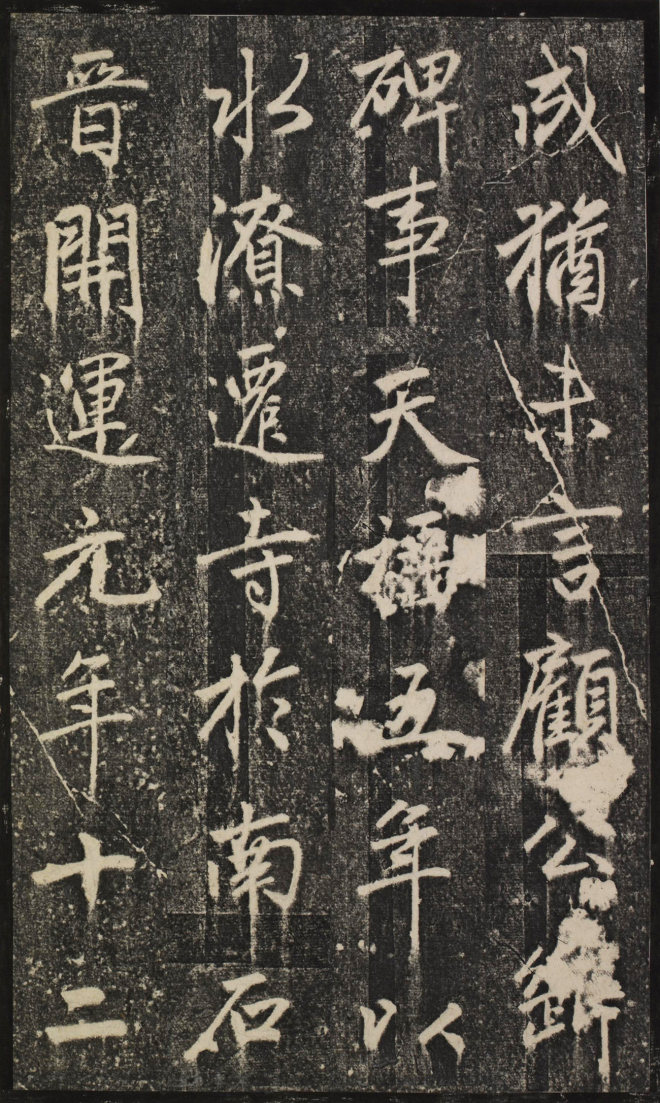 成猶未言顧公
碑事天福五年以
水潦遷寺於南石
晋開運元年十二